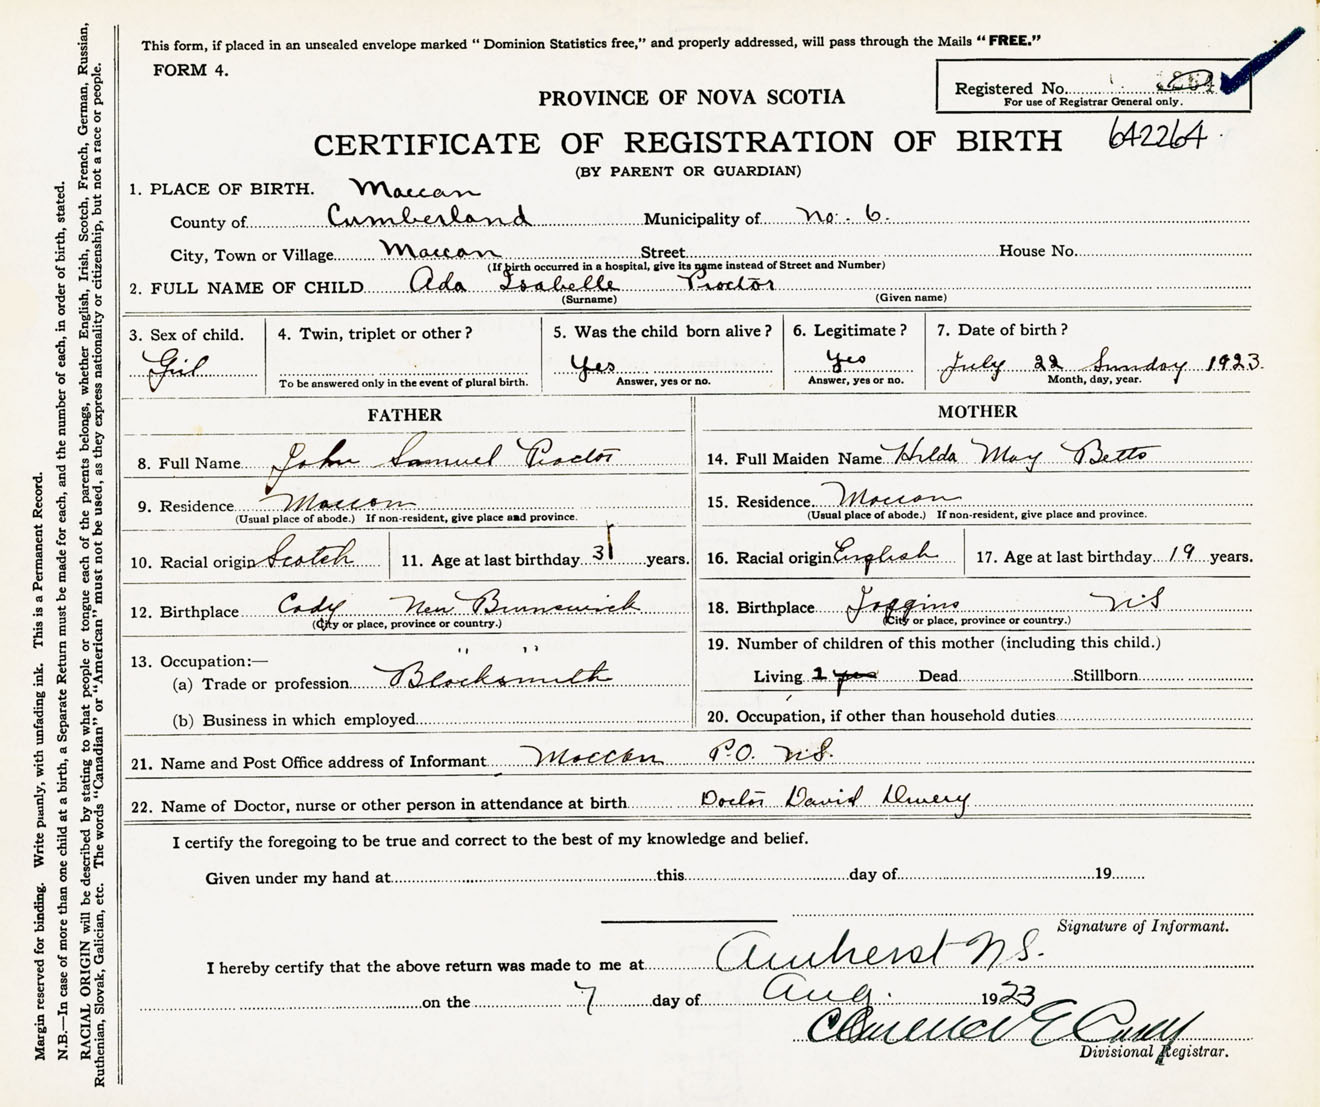 This form, if placed in an unsealed envelope marked “ Dominion Statistics free,” and properly addressed, will pass through the Mails “ FREE.”
FORM 4.
Registered No.
For use of Registrar General only.
PROVINCE OF NOVA SCOTIA
CERTIFICATE OF REGISTRATION OF BIRTH 642264
(BY PARENT OR GUARDIAN)
1. PLACE OF BIRTH. Maccan
County of Cumberland Municipality of No. 6.
City, Town or Village Maccan Street House No.
(If birth occurred in a hospital, give its name instead of Street and Number)
2. FULL NAME OF CHILD Ada Isabelle Proctor
(Surname) (Given name)
3. Sex of child. 4. Twin, triplet or other ? 5. Was the child born alive ? 6. Legitimate ? 7. Date of birth ?
Girl Yes Yes July 22 Sunday 1923.
To be answered only in the event of plural birth. Answer, yes or no. Answer, yes or no. Month, day, year.
FATHER
8. Full Name John Samuel Proctor
9. Residence Maccan
(Usual place of abode.) If non-resident, give place and province.
10. Racial origin Scotch 11. Age at last birthday 31 years.
12. Birthplace Cody New Brunswick
(City or place, province or country.)
13. Occupation:— " "
(a) Trade or profession Blacksmith
(b) Business in which employed
MOTHER
14. Full Maiden Name Hilda May Betts
15. Residence Maccan
(Usual place of abode.) If non-resident, give place and province.
16. Racial origin English 17. Age at last birthday 19 years.
18. Birthplace Joggins NS
(City or place, province or country.)
19. Number of children of this mother (including this child.)
Living 1 Dead Stillborn
20. Occupation, if other than household duties
21. Name and Post Office address of Informant Maccan P.O. N.S.
22. Name of Doctor, nurse or other person in attendance at birth Doctor David
I certify the foregoing to be true and correct to the best of my knowledge and belief.
Given under my hand at this day of 19
Signature of Informant.
I hereby certify that the above return was made to me at Amherst N.S.
on the 7 day of Aug. 1923
Clarence E Casey
Divisional Registrar.
Margin reserved for binding. Write plainly, with unfading ink. This is a Permanent Record.
N.B.—In case of more than one child at a birth, a Separate Return must be made for each, and the number of each, in order of birth, stated.
RACIAL ORIGIN will be described by stating to what people or tongue each of the parents belongs, whether English, Irish, Scotch, French, German, Russian,
Ruthenian, Slovak, Galician, etc. The words “Canadian” or “American” must not be used, as they express nationality or citizenship, but not a race or people.